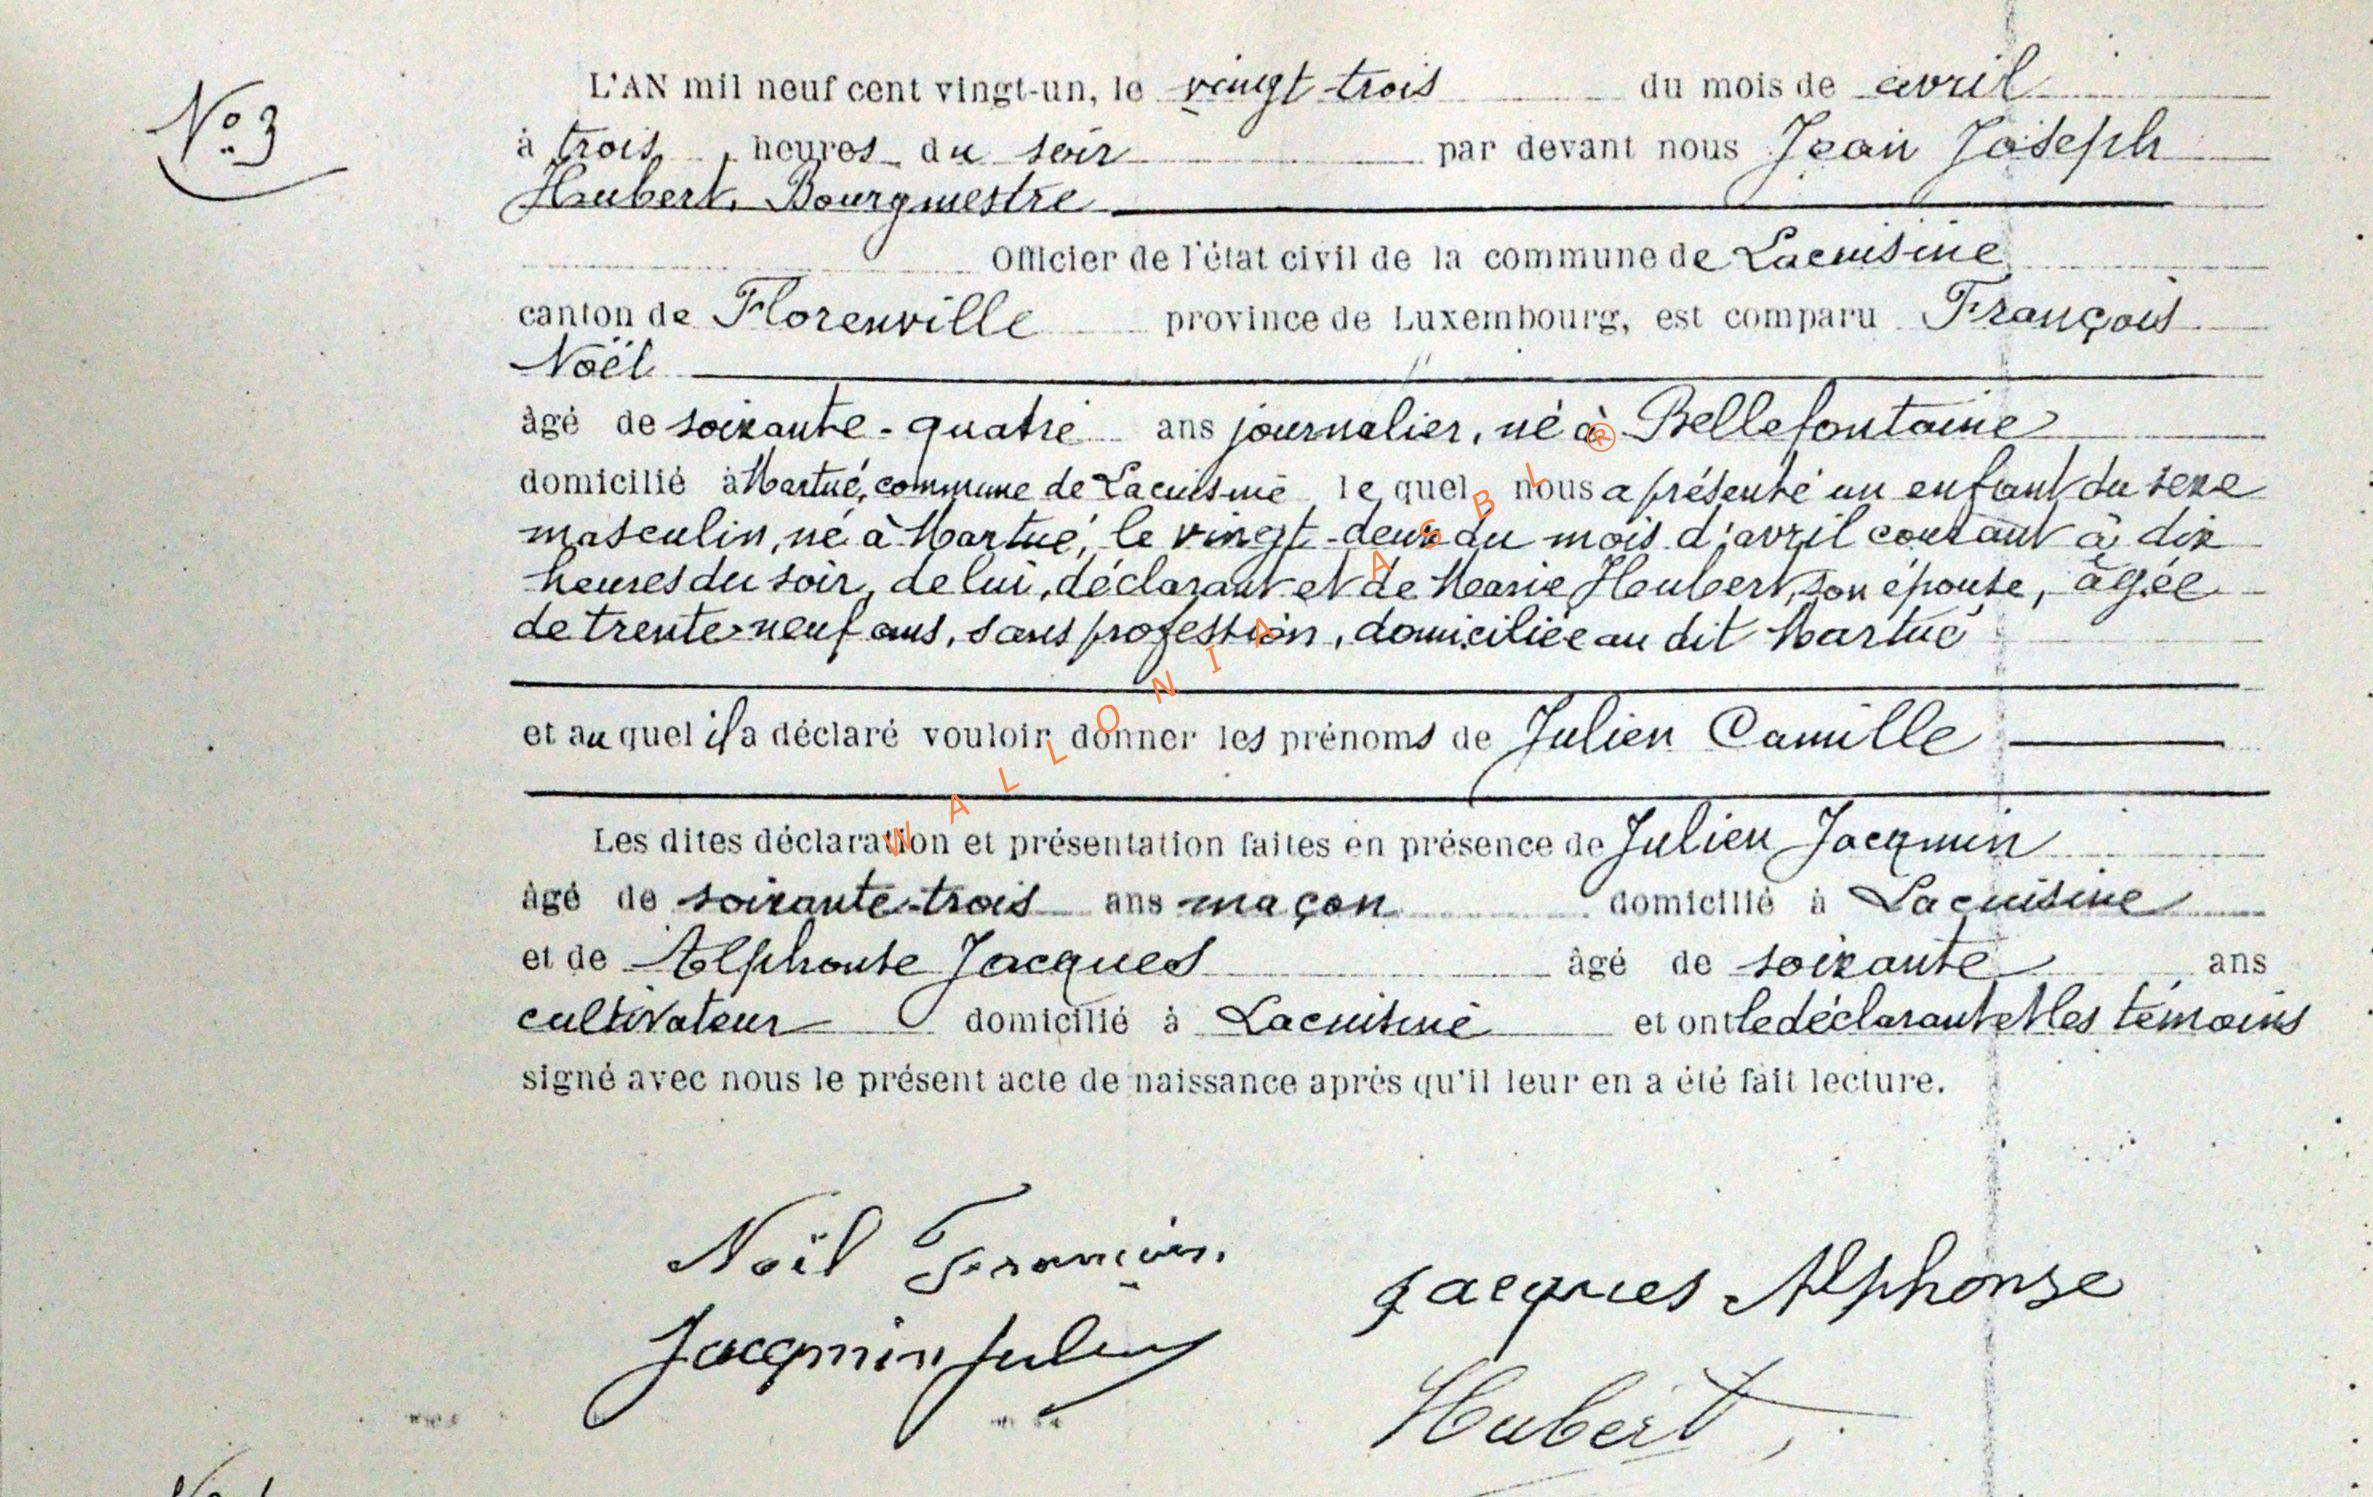 N° 3
L'AN mil neuf cent vingt-un, le vingt-trois du mois de avril
à trois heures du soir par devant nous Jean Joseph
Hubert, Bourgmestre
Officier de l'état civil de la commune de Lacuisine
canton de Florenville province de Luxembourg, est comparu François
Noël
âgé de soixante-quatre ans journalier, né à Bellefontaine
domicilié à Martué, commune de Lacuisine lequel nous a présenté un enfant du sexe
masculin, né à Martué, le vingt-deux du mois d'avril courant à dix
heures du soir, de lui, déclarant et de Marie Hubert, son épouse, âgée
de trente-neuf ans, sans profession, domiciliée au dit Martué
et auquel il a déclaré vouloir donner les prénoms de Julien Camille
Les dites déclaration et présentation faites en présence de Julien Jacqmin
âgé de soixante-trois ans maçon domicilié à Lacuisine
et de Alphonse Jacques âgé de soixante ans
cultivateur domicilié à Lacuisine et ont le déclarant et les témoins
signé avec nous le présent acte de naissance après qu'il leur en a été fait lecture.
Noël François.
Jacques Alphonse
Jacqmin Julien
Hubert,
WALLONIA ASBL ®